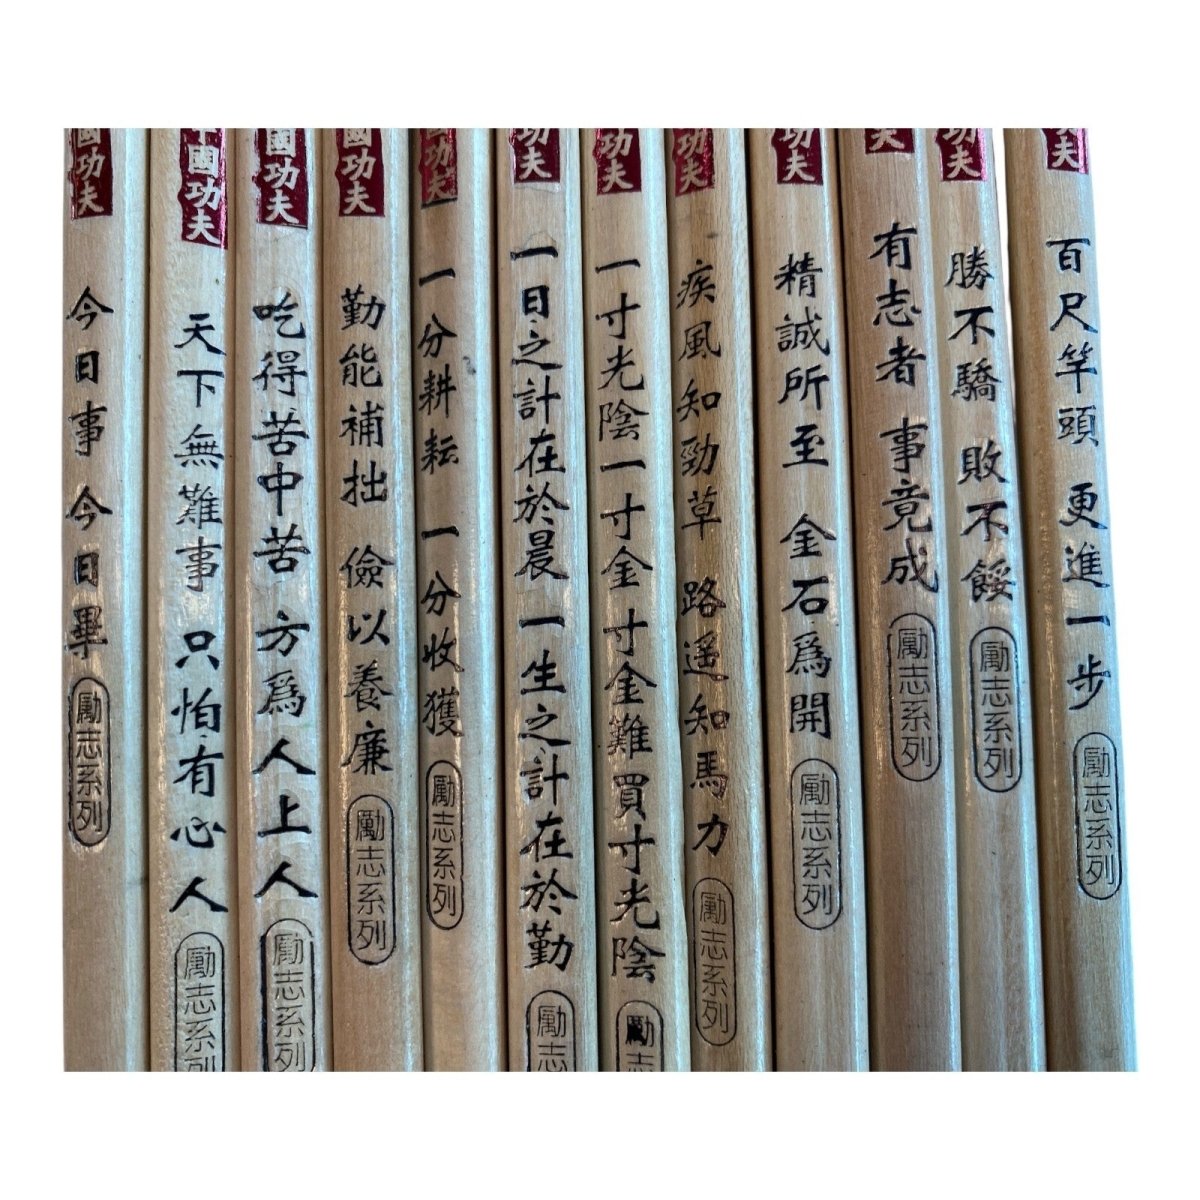 國功夫 今日事 今日畢 勵志系列
中國功夫 天下無難事 只怕有心人 勵志系列
國功夫 吃得苦中苦 方爲人上人 勵志系列
國功夫 勤能補拙 儉以養廉 勵志系列
國功夫 一分耕耘 一分收獲 勵志系列
功夫 一日之計在於晨 一生之計在於勤 勵志
功夫 一寸光陰一寸金 寸金難買寸光陰 勵志
功夫 疾風知勁草 路遥知馬力 勵志系列
功夫 精誠所至 金石爲開 勵志系列
夫 有志者 事竟成 勵志系列
功夫 勝不驕 敗不餒 勵志系列
夫 百尺竿頭 更進一步 勵志系列